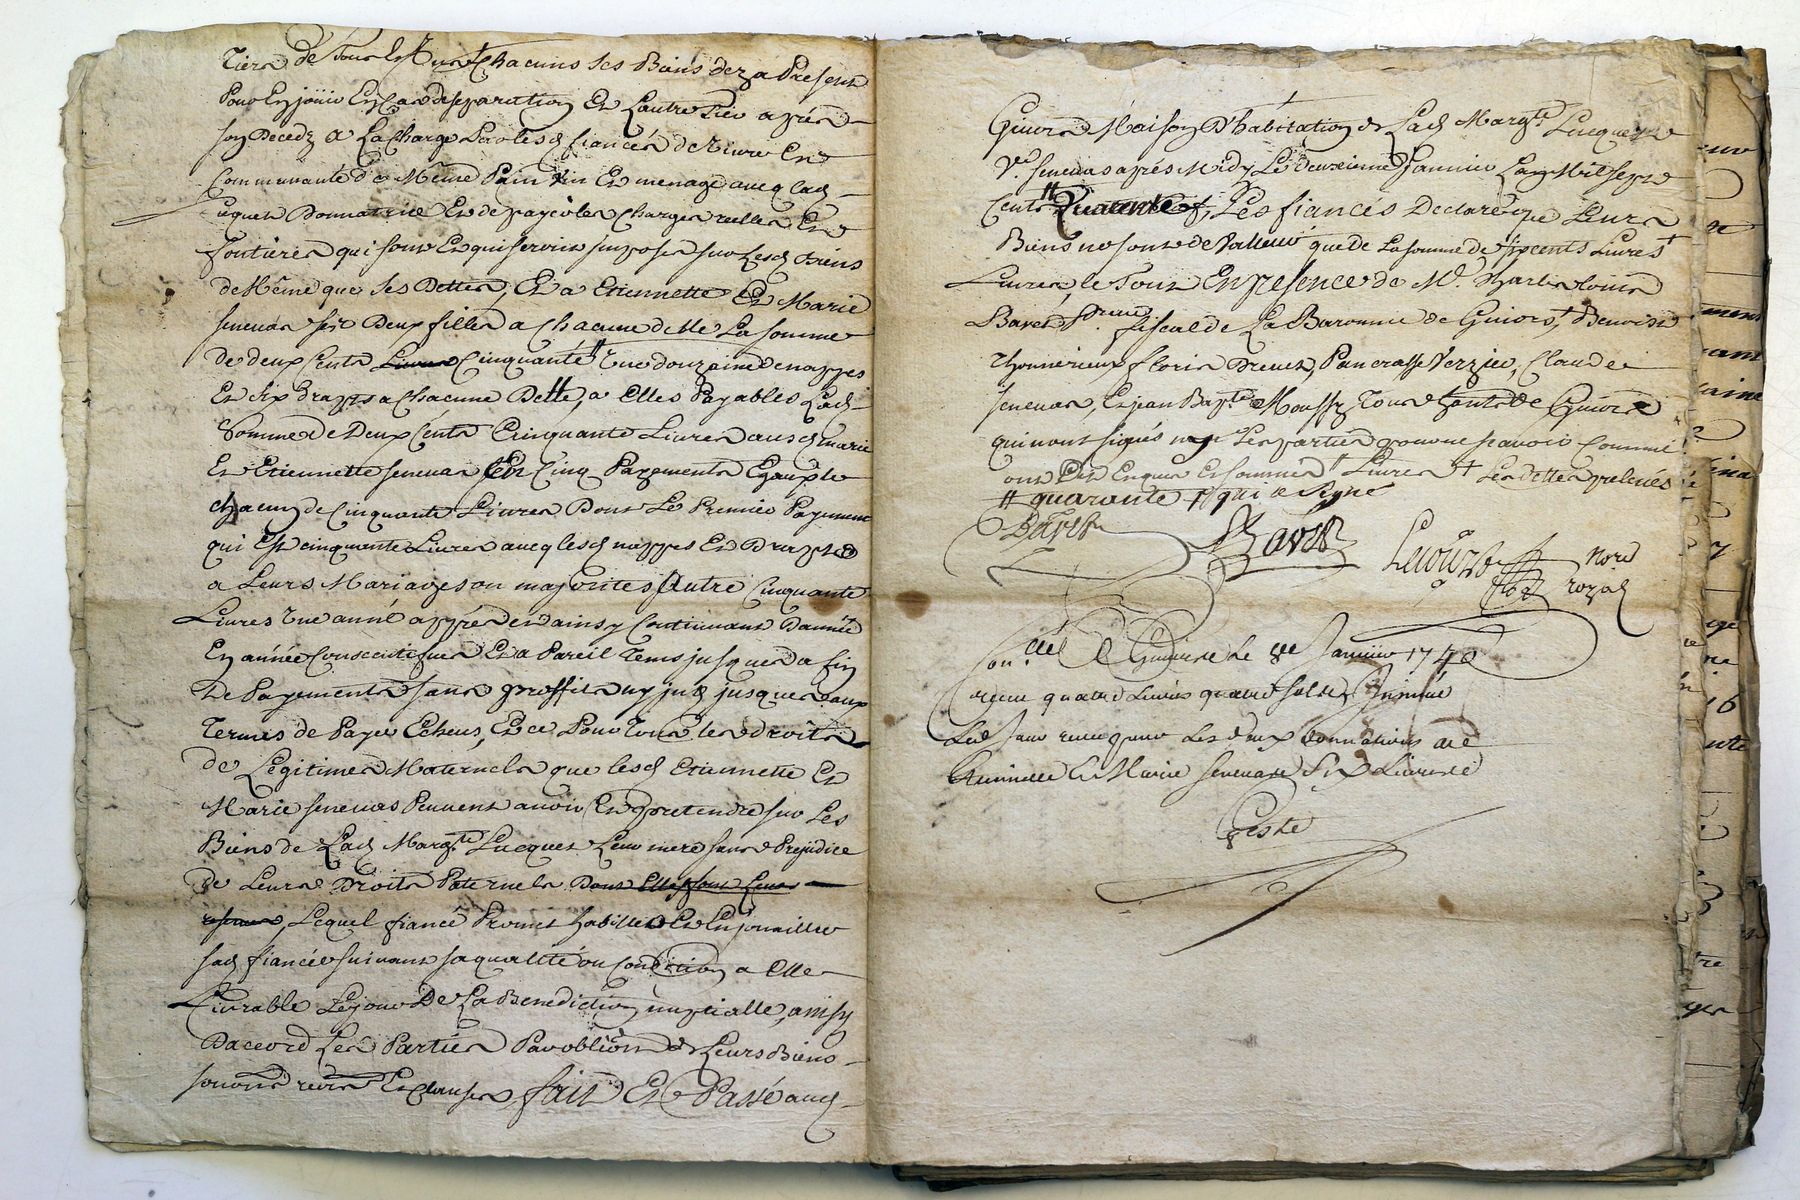 Tiers de tous Et un Chacuns ses Biens dez a Present
Pour En jouir En Cas de separation Et L'autre tier apres
son Deced a La Charge Par lesd fiancés de vivre En
Communauté d'o Même Pain vin Et menage avecq lad
Lucquet Donnatrice Et de payer les Charges reelles Et
fontieres qui sont Et qui seront imposes sur Lesd Biens
de Même que ses Dettes, Et a Etiennette Et Marie
senevas ses Deux filles a Chacune d'elle La somme
De deux Cents Livres Cinquante # une douzaine de nappes
Et six Draps a Chacune Dette, a elles Payables Lad
Somme de Deux Cents Cinquante Livres ausd Marie
Et Etiennette senevas En Cinq Payements Egaux de
chacun de Cinquante Livres Dont Le Premier Payement
qui Est cinquante Livres avecq lesd nappes Et Draps
a Leurs Mariages ou majorites Autre Cinquante
Livres une anné apprés et ainsy Continuant D'année
En année Consecutifves Et a Pareil Tems jusques a fin
De Payements sans proffits ny jusques aux
Termes de Paye Echeus, Et ce Pour Tous les droits
De Legitimes Maternels que lesd Etiennette Et
Marie senevas Peuvent avoir Et pretendre sur Les
Biens de Lad Margte Lucquet Leur mere sans Prejudice
De Leurs Droits Paternels Dont Elles sont Leurs
Lequel fiancé Promet habiller Et Enjouailler
sad fiancée suivant sa qualité ou Condition a Elle
Livrable Le jour De La Benediction nuptialle, ainsy
D'accord Les Parties Par obliōn de Leurs Biens
Et Clauses, fait Et Passé aud
Givors Maison D'habitation de Lad Margte Lucquet
Ve senevas aprés Midy Le deuxieme Janvier L'an Mil sept
Cents # Les fiancés Declaré que Leurs
Biens ne sont de Valleur que de La somme de six cents Livres +
Livres, le Tout En presence de Me Charles Louis
Bavet fiscal de La Baronnie de Givors, + Benoist
Thonnerieux floris Drevet, Pancrasse Verzier, Claude
senevas, Et Jean Bapte Moussy Tous de Givors
qui n'ont signés n'y Les parties pour ne sçavoir Comme
ont Dit Enquis Et sommés # Livres + Les dettes prelevés
# quarante + qui a signé
Bavet Bavet Lucquet Nore
royal
Conlé a Givors le 8e Janvier 1740
receu quatre Livres quatre sols Insinué
Led Jour receu pour Les deux donnations de
Etiennette Et Marie senevas six Livres
Geste